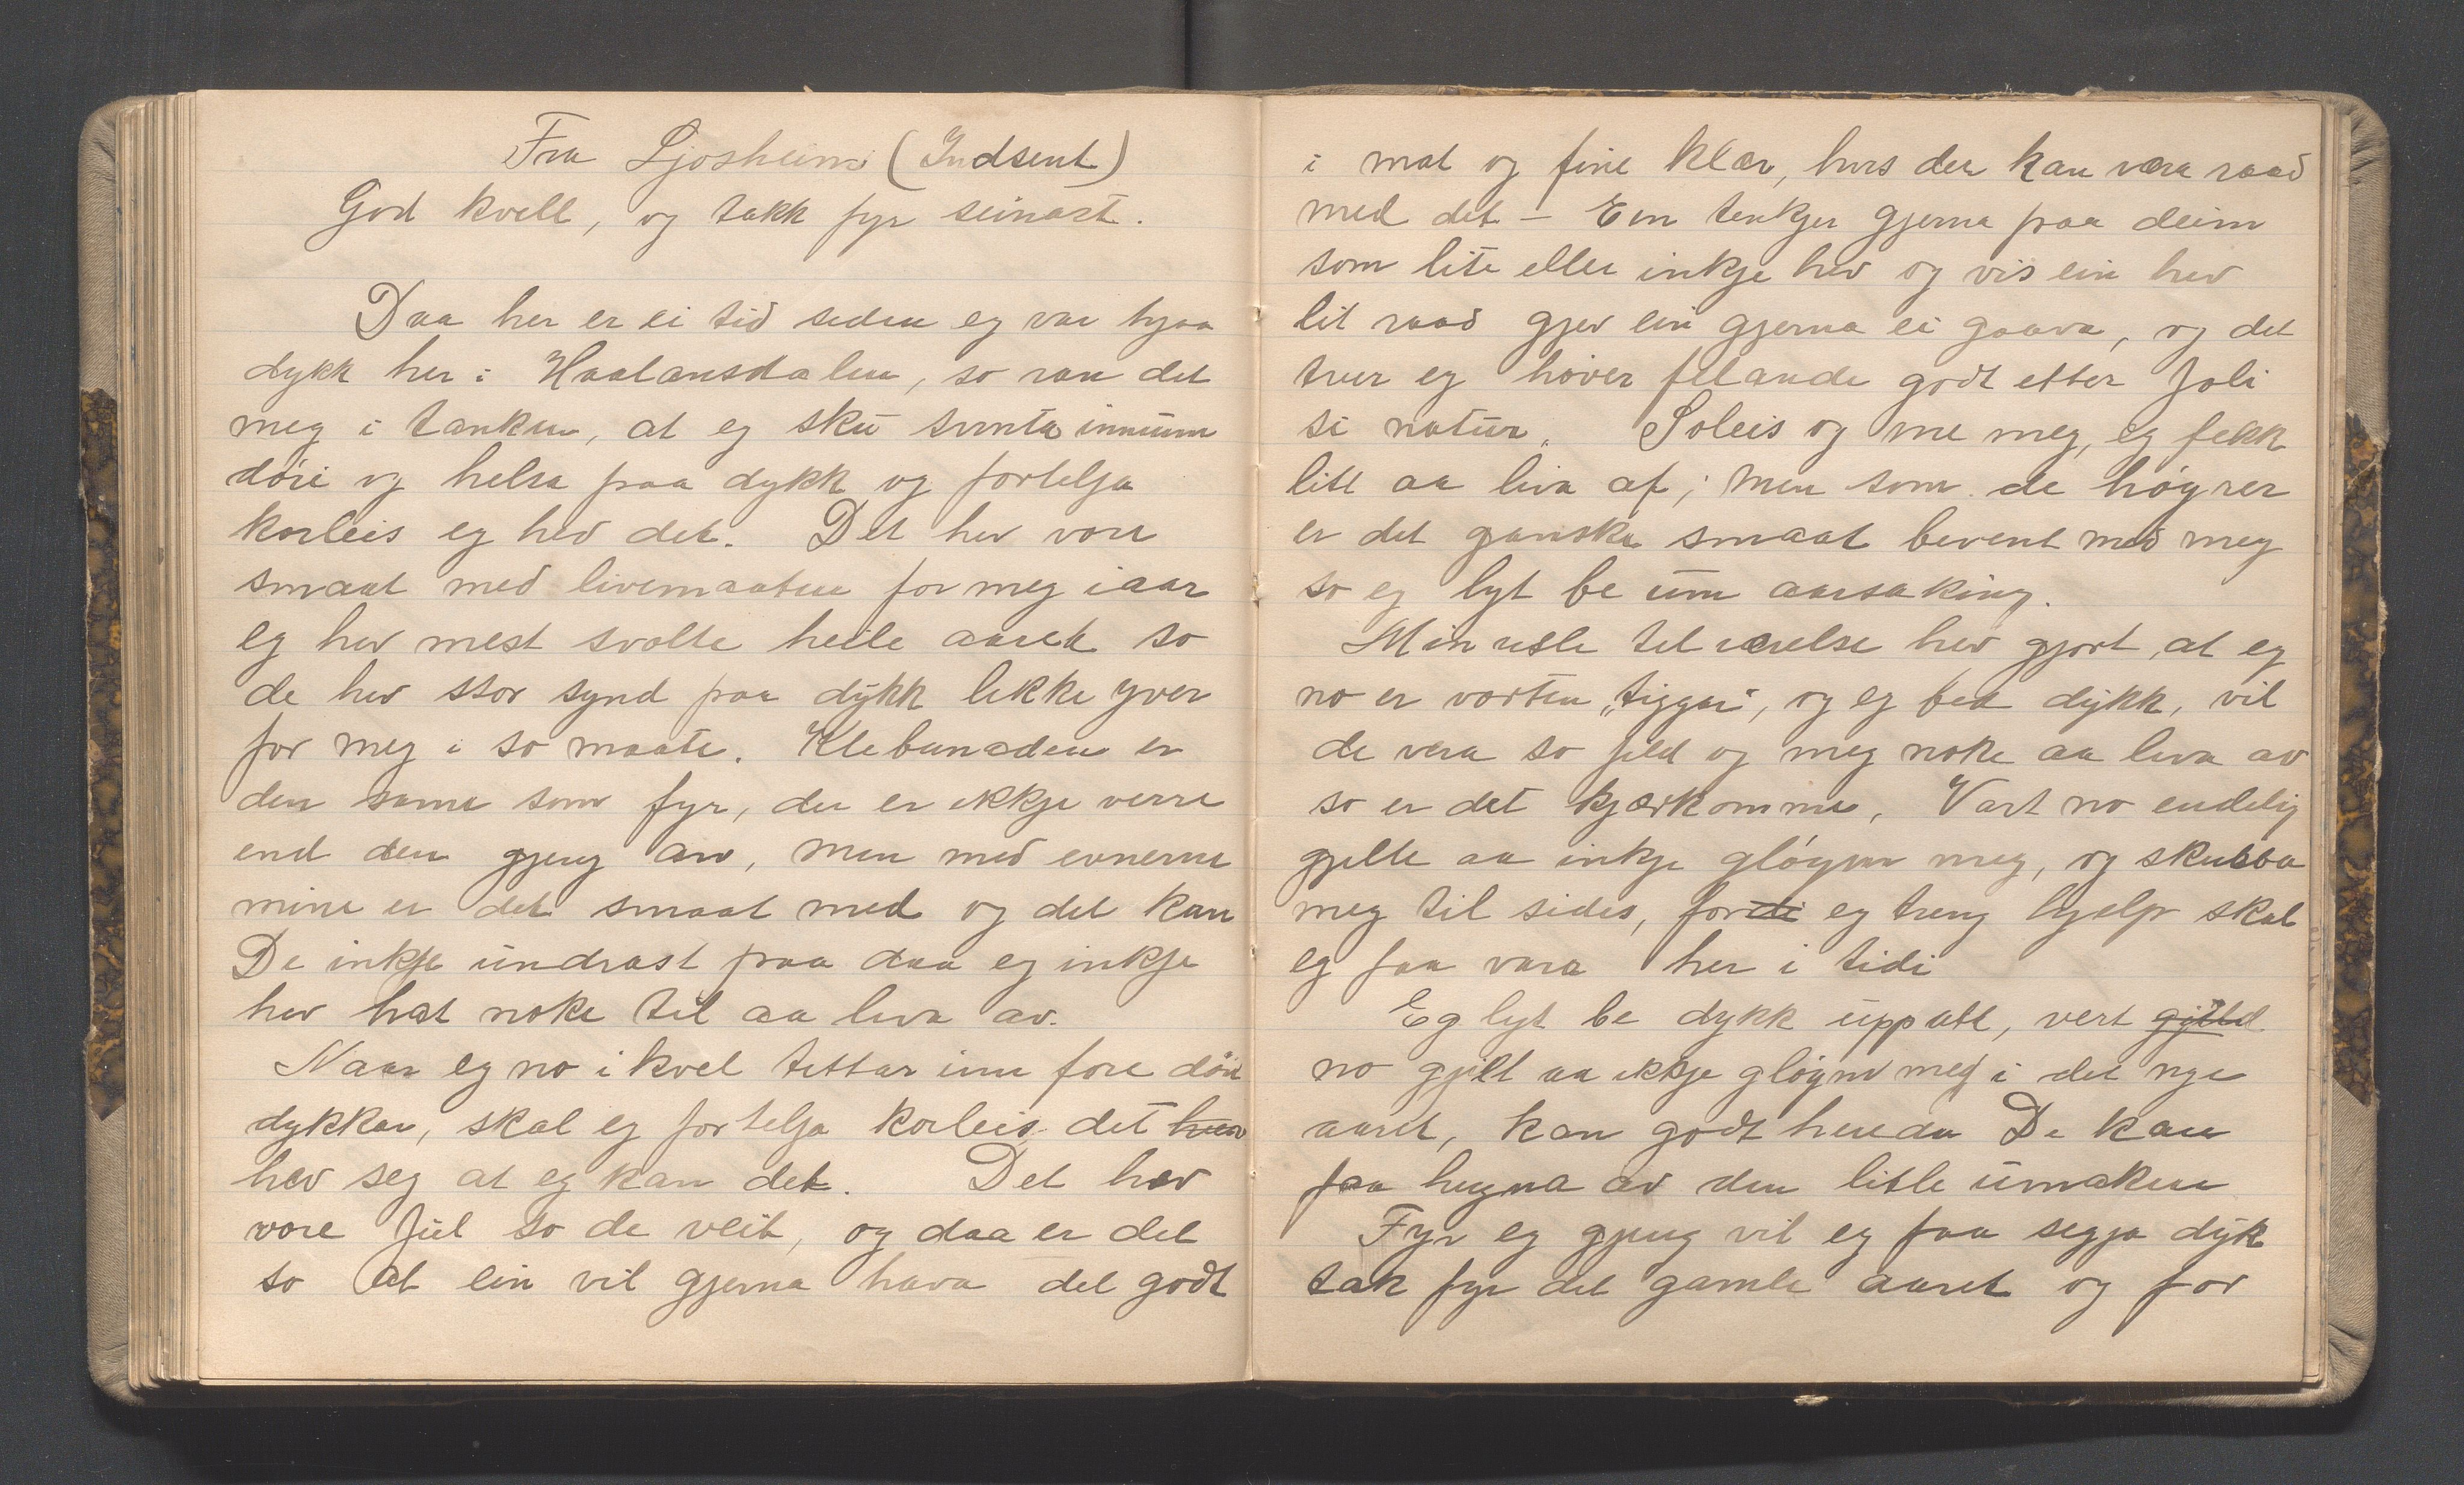 Fra Ljosheim (Indsent)
God kvell, og takk fyr seinast.
Daa her er ei tid seden eg var hjaa
dykk her i Haalansdalen, so ran det
meg i tanken, at eg sku svinta innum
döri og helsa paa dykk og fortelja
korleis eg hev det. Det hev vore
smaat med livemaaten for meg iaar
eg hev mest svolte heile aaret so
de hev stor synd paa dykk likke yver
for meg i so maate. Klebunaden er
den same som fyr, den er ikkje verre
end den gjeng an, men med evnerne
mine er det smaat med og det kan
De inkje undrast paa daa eg inkje
hev hat noke til aa leva av.
Naar eg no i kvel tettar inn fore döri
dykkar, skal eg fortelja korleis det hev
hev seg at eg kan det. Det hev
vore Jul so de veit, og daa er det
so at ein vil gjerna hava det godt
i mat og fine klær, hvis der kan være raad
med det – Ein tenkjer gjerna paa deim
som lite eller inkje hev og vis ein hev
lit raad gjev ein gjerna ei gaava, og det
trur eg höver felande godt etter Joli
si natur. Soleis og me meg, eg fekk
litt aa liva af; men som de höyrer
er det ganske smaat bevent med meg
so eg lyt be um aarsaking.
Min usle tilværelse hev gjort, at eg
no er vorten "tiggar", og eg bed dykk, vil
de vera so jild og meg noke aa leva av
so er det kjærkomme, Vart no endelig
gjilde aa inkje glöyme meg, og skubba
meg til sides, fordi eg treng hjelp skal
eg faa vara her i tidi
Eg lyt be dykk uppatt, vert gjild
no gjilt aa ikkje glöyme meg i det nye
aaret, kan godt henda De kan
faa hugna av den litle umaken
Fyr eg gjeng vil eg faa segja dyk
tak fyr det gamle aaret og for